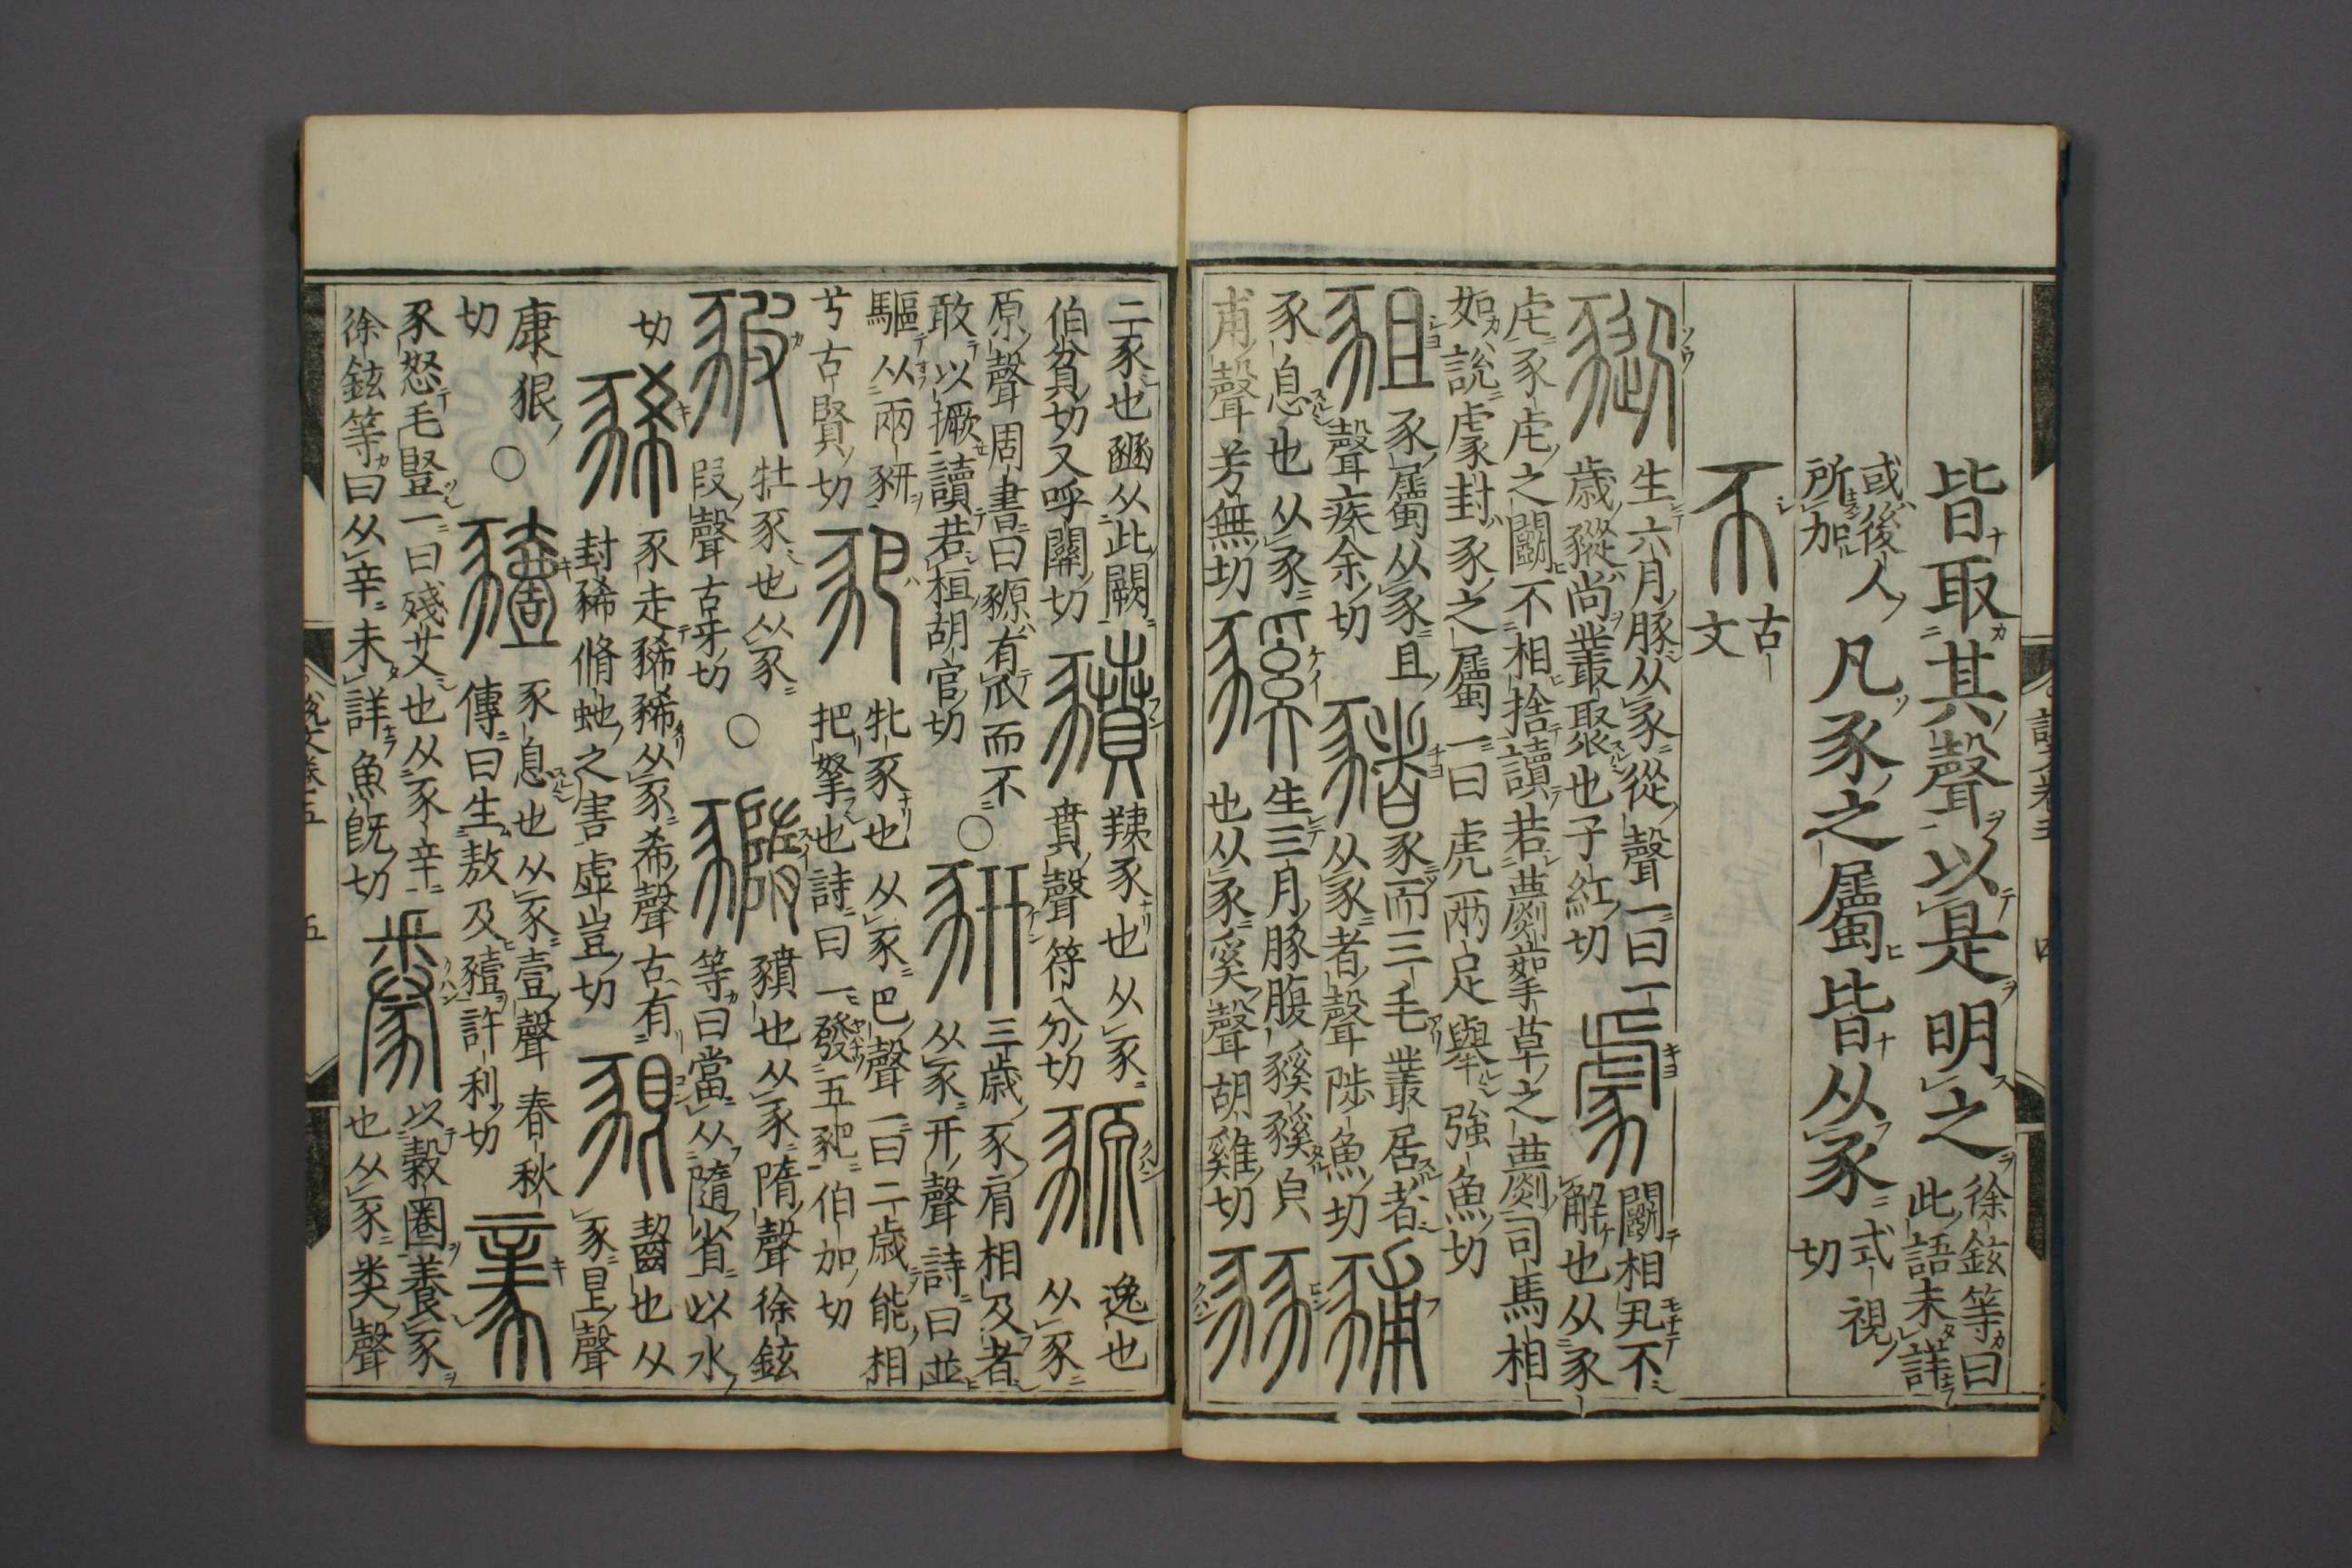 皆取其聲以是明之
徐鉉等曰
此語未詳
或後人
所加
凡豕之屬皆从豕
式視
切
古
文
豵
生六月豚从豕從聲一曰一
歲豵尚叢聚也子紅切
豦
鬬相丮不
解也从豕
虍豕虍之鬬不相捨讀若蘮蒘草之蘮司馬相
如說豦封豕之屬一曰虎兩足舉強魚切
豠
豕屬从豕且
聲疾余切
豬
豕而三毛叢居者
从豕者聲陟魚切
豧
豕息也从豕
甫聲芳無切
豯
生三月豚腹豯豯皃
也从豕奚聲胡雞切
豩
二豕也豳从此闕
伯貧切又呼關切
豶
羠豕也从豕
賁聲符分切
豲
逸也
从豕
原聲周書曰豲有爪而不
敢以撅讀若桓胡官切
○
豣
三歲豕肩相及者
从豕幵聲詩曰並
驅从兩豣
兮古賢切
豝
牝豕也从豕巴聲一曰二歲能相
把拏也詩曰一發五豝伯加切
豭
牡豕也从豕
叚聲古牙切
○
豶也从豕隋聲徐鉉
等曰當从隨省以水
切
豨
豕走豨豨从豕希聲古有
封豨脩虵之害虛豈切
豤
齧也从
豕𥃩聲
康狠
切
○
豷
豕息也从豕壹聲春秋
傳曰生敖及豷許利切
豙
豕怒毛豎一曰殘艾也从豕辛
徐鉉等曰从辛未詳魚既切
豢
以穀圈養豕
也从豕𢍏聲